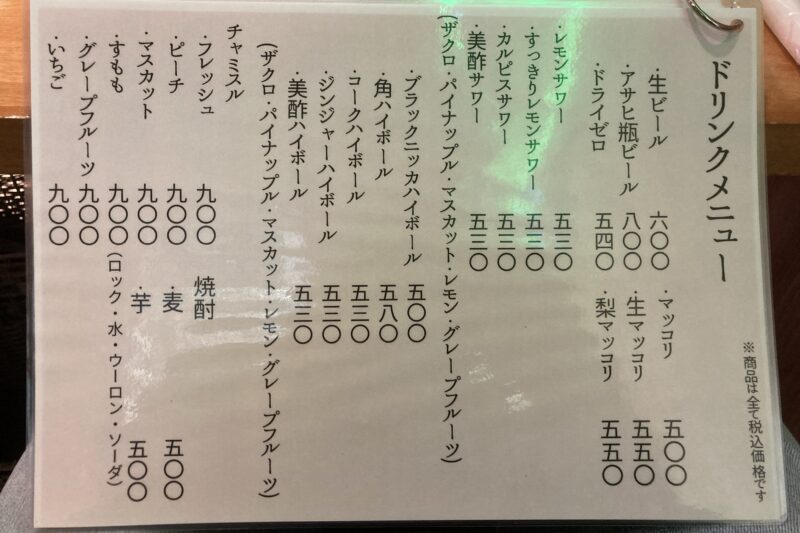 ドリンクメニュー
※商品は全て税込価格です
・生ビール 六〇〇
・アサヒ瓶ビール 八〇〇
・ドライゼロ 五四〇
・マッコリ 五〇〇
・生マッコリ 五五〇
・梨マッコリ 五五〇
・レモンサワー 五三〇
・すっきりレモンサワー 五三〇
・カルピスサワー 五三〇
・美酢サワー
(ザクロ・パイナップル・マスカット・レモン・グレープフルーツ)
・ブラックニッカハイボール 五〇〇
・角ハイボール 五八〇
・コークハイボール 五三〇
・ジンジャーハイボール 五三〇
・美酢ハイボール 五三〇
(ザクロ・パイナップル・マスカット・レモン・グレープフルーツ)
チャミスル
・フレッシュ 九〇〇
・ピーチ 九〇〇
・マスカット 九〇〇
・すもも 九〇〇
・グレープフルーツ 九〇〇
・いちご 九〇〇
焼酎
・麦 五〇〇
・芋 五〇〇
(ロック・水・ウーロン・ソーダ)